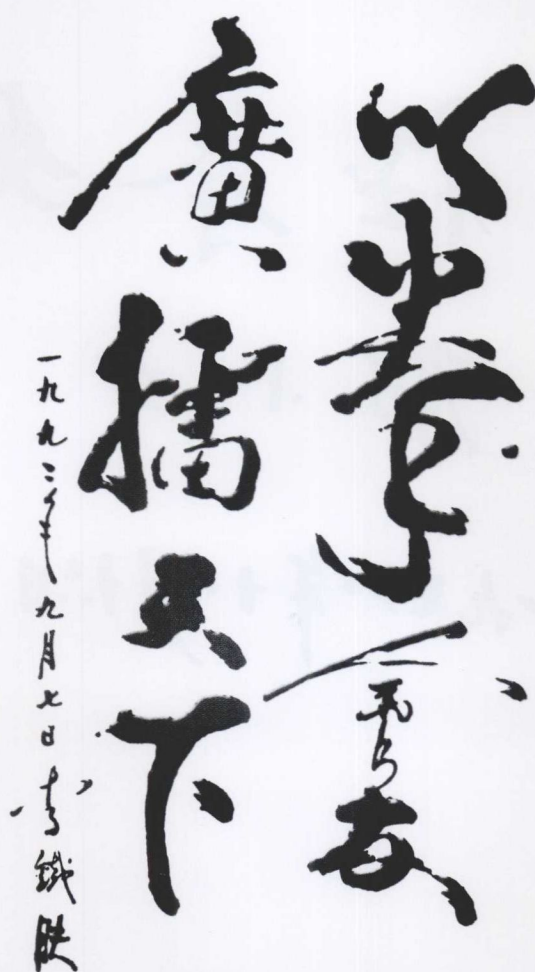 以拳會友
廣擂天下
一九九二年九月七日 李鐵映